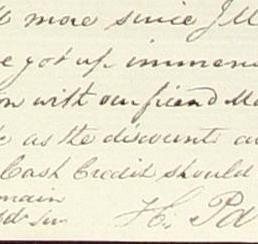 more since I
got up immen
on with our friend Mc
as the discounts a
Cash Credit should
main
H. Pa